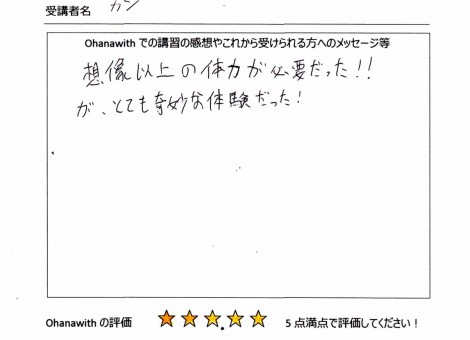 受講者名 カン
Ohanawith での講習の感想やこれから受けられる方へのメッセージ等
想像以上の体力が必要だった!!
が、とても奇妙な体験だった!
Ohanawith の評価 ★★★★★ 5 点満点で評価してください!